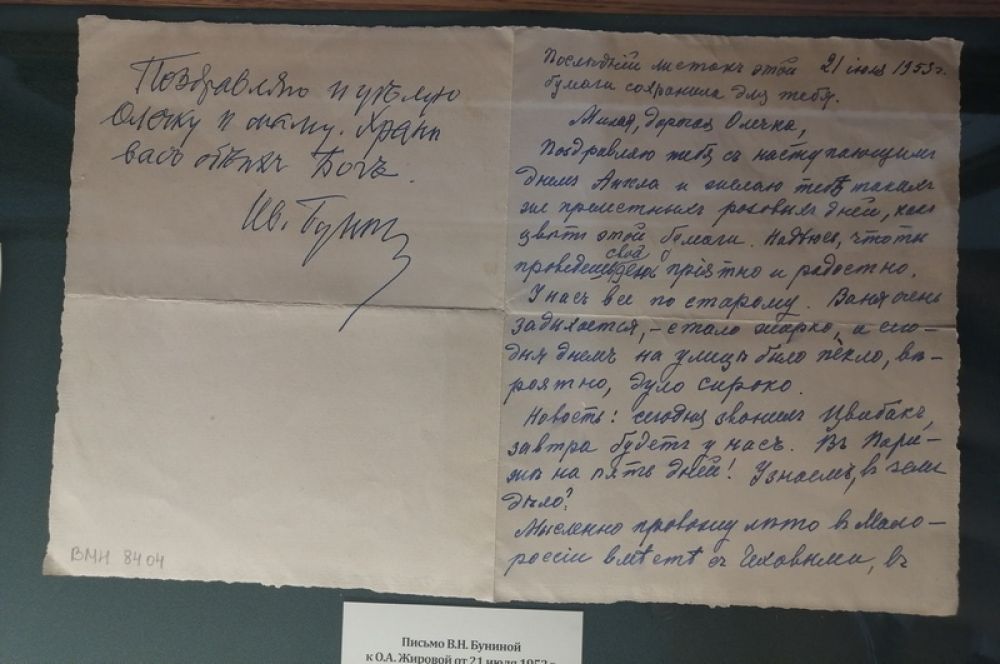 Поздравляю и цѣлую
Олечку и маму. Храни
васъ обѣихъ Богъ.
Ив. Бунин
ВМН 8404
Послѣдній листокъ этой 21 іюля 1953 г.
бумаги сохранила для тебя.
Милая, дорогая Олечка,
Поздравляю тебя съ наступающимъ
днемъ Ангела и желаю тебѣ такихъ
же прелестныхъ розовыхъ дней, какъ
цвѣтъ этой бумаги. Надѣюсь, что ты
проведешь свой день пріятно и радостно.
У насъ все по старому. Ваня очень
задыхается, – стало жарко, а сего-
дня днемъ на улицѣ было пекло, вѣ-
роятно, дуло сироко.
Новость: сегодня звонилъ Цвибакъ,
завтра будетъ у насъ. Въ Пари-
жѣ на пять дней! Узнаемъ, в чемъ
дѣло?
Мысленно провожу лѣто в Мало-
россіи вмѣстѣ съ Чеховыми, въ
Письмо В.Н. Буниной
к О.А. Жировой от 21 июля 1953 г.